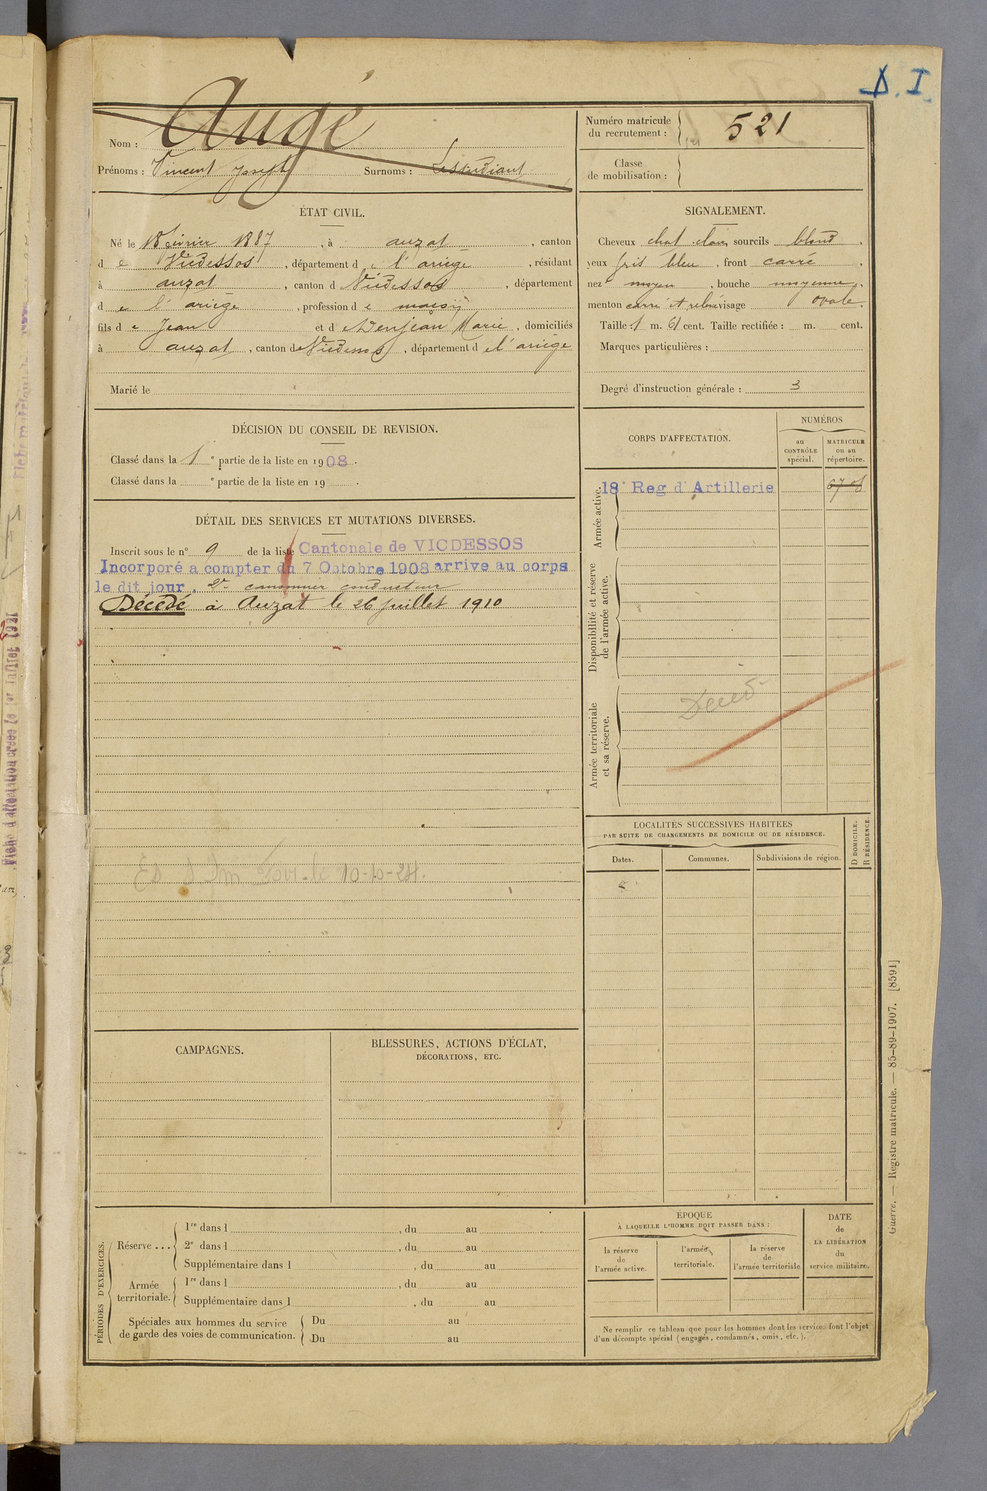 D. I.
Augé
Nom :
Prénoms : Vincent Joseph Surnoms : Lestudiant
Numéro matricule du recrutement : 521
Classe de mobilisation :
ÉTAT CIVIL.
Né le 18 février 1887, à auzat, canton
de Vicdessos, département de l'ariège, résidant
à auzat, canton de Vicdessos, département
de l'ariège, profession de
fils de Jean et de Marie, domiciliés
à auzat, canton de Vicdessos, département de l'ariège
Marié le
SIGNALEMENT.
Cheveux chat clair, sourcils blond.
yeux gris bleu, front carré.
nez moyen, bouche moyenne,
menton carré et visage ovale.
Taille 1 m. 61 cent. Taille rectifiée : m. cent.
Marques particulières :
Degré d'instruction générale : 3
DÉCISION DU CONSEIL DE REVISION.
Classé dans la 1e partie de la liste en 1908.
Classé dans la e partie de la liste en 19 .
DÉTAIL DES SERVICES ET MUTATIONS DIVERSES.
Inscrit sous le n° 9 de la liste Cantonale de VICDESSOS
Incorporé a compter du 7 Octobre 1908 arrive au corps
le dit jour, 2e canonnier conducteur
Décédé à Auzat le 26 juillet 1910
10-10-24.
CORPS D'AFFECTATION.
NUMÉROS
au CONTRÔLE spécial.
MATRICULE ou au répertoire.
Armée active.
18e Reg d'Artillerie
Disponibilité et réserve de l'armée active.
Armée territoriale et sa réserve.
Décédé
LOCALITÉS SUCCESSIVES HABITÉES
PAR SUITE DE CHANGEMENTS DE DOMICILE OU DE RÉSIDENCE.
Dates.
Communes.
Subdivisions de région.
D DOMICILE.
R RÉSIDENCE.
CAMPAGNES.
BLESSURES, ACTIONS D'ÉCLAT,
DÉCORATIONS, ETC.
PÉRIODES D'EXERCICES.
Réserve ...
1re dans l , du au
2e dans l , du au
Supplémentaire dans l , du au
Armée territoriale.
1re dans l , du au
Supplémentaire dans l , du au
Spéciales aux hommes du service
de garde des voies de communication.
Du au
Du au
ÉPOQUE
À LAQUELLE L'HOMME DOIT PASSER DANS :
la réserve de l'armée active.
l'armée territoriale.
la réserve de l'armée territoriale
DATE de LA LIBÉRATION du service militaire.
Ne remplir ce tableau que pour les hommes dont les services font l'objet
d'un décompte spécial (engagés, condamnés, omis, etc.).
Guerre. — Registre matricule. — 85-89-1907. [8591]